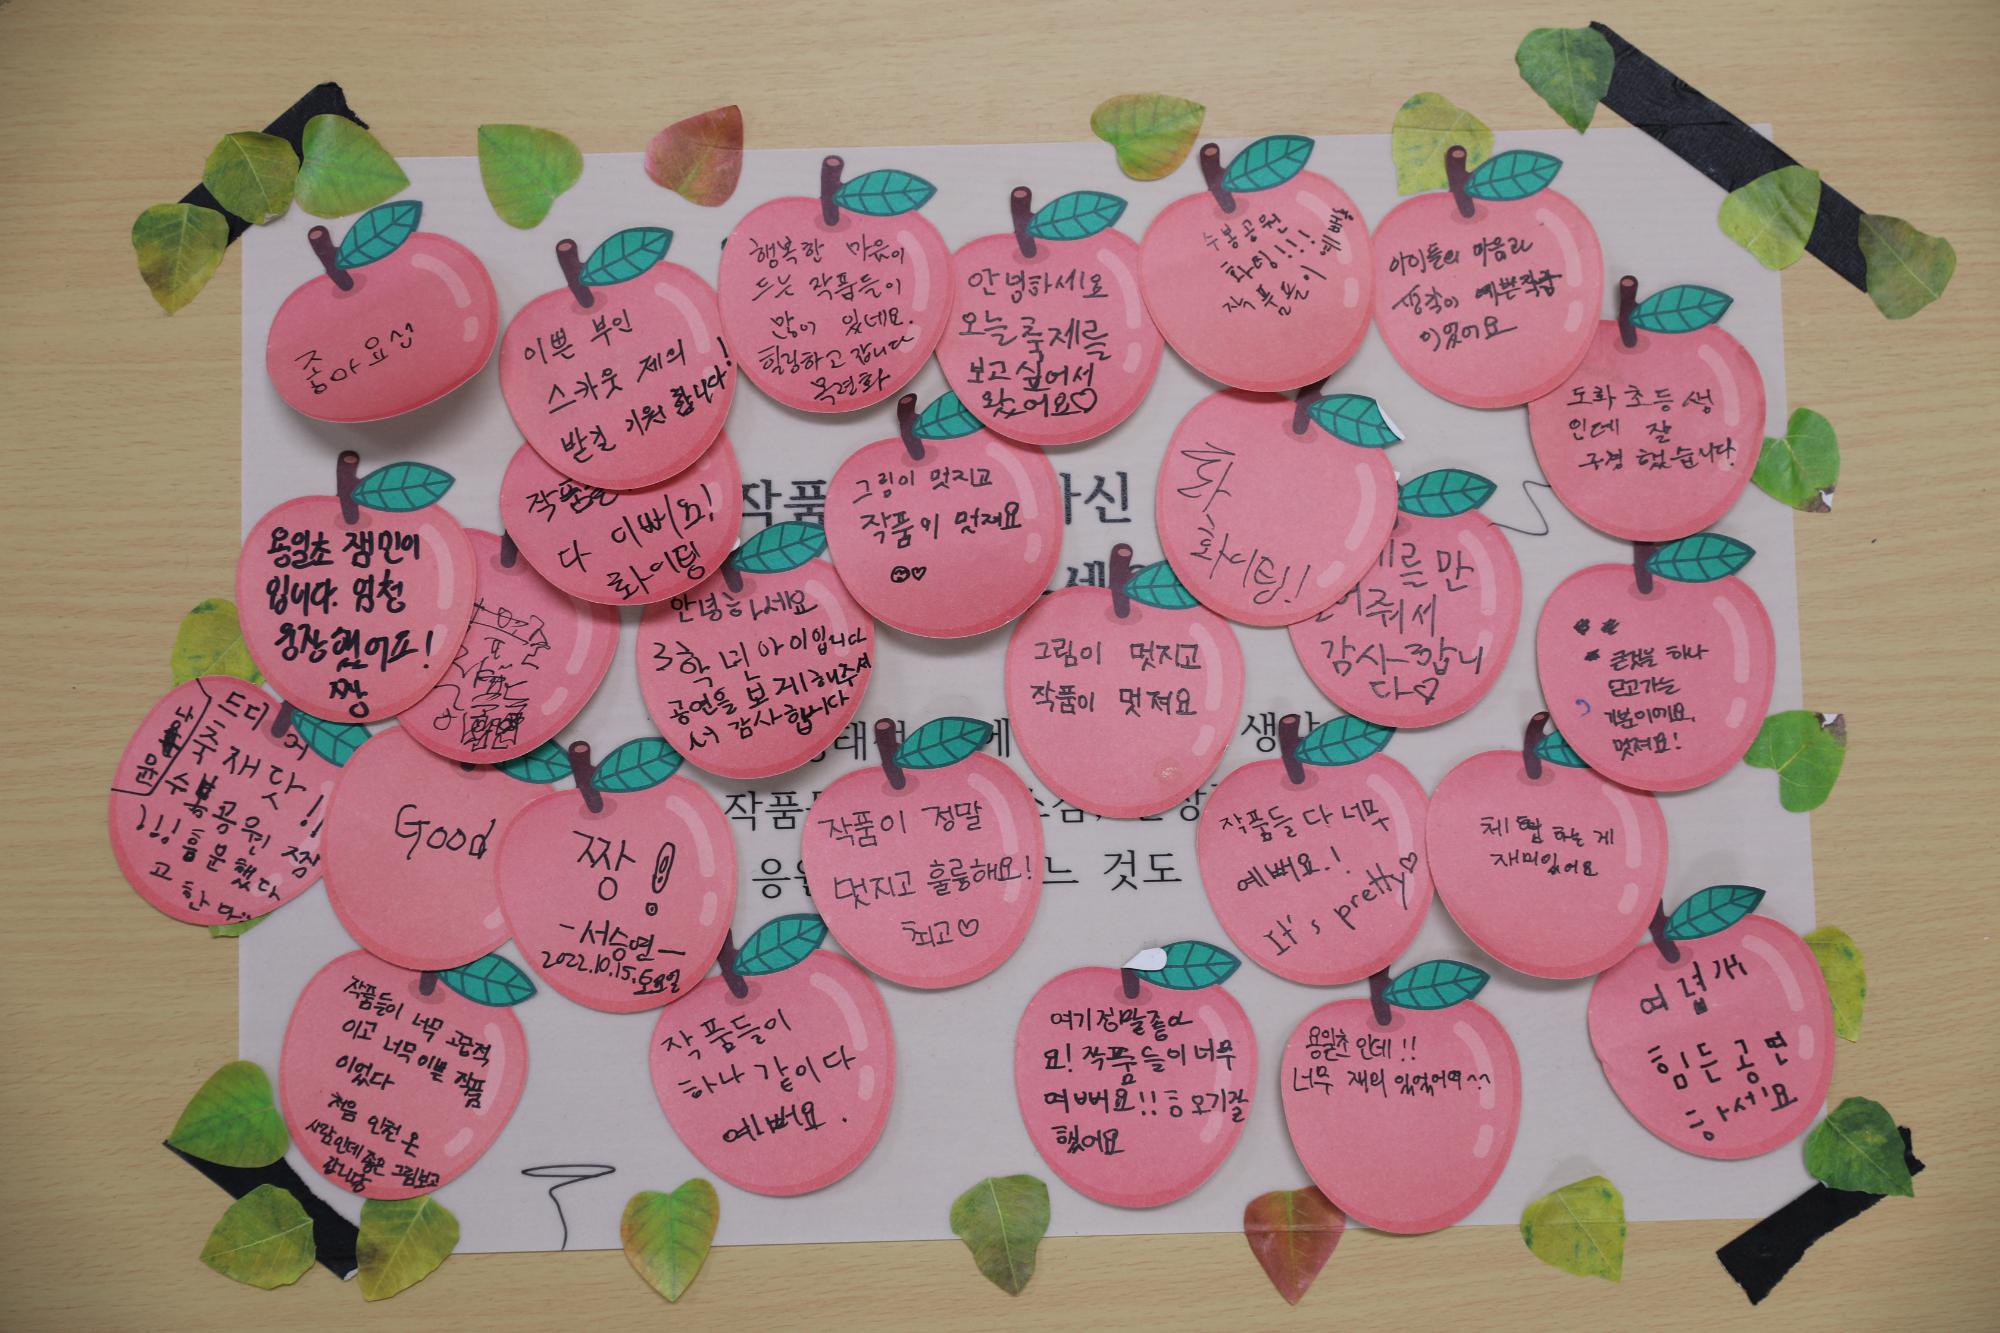 좋아요
이쁜 부인
스카웃 제의
발길 기원 합니다!
행복한 마음이
드는 작품들이
많이 있네요.
힐링하고 갑니다
목련화
안녕하세요
오늘 축제를
보고싶어서
왔어요♡
수봉공원
화팅!!!
작품들이 예뻐요
아이들의 마음과
생각이 예쁜작품
이었어요
도화초등생
인데 잘
구경 했습니다.
용일초 잼민이
입니다. 엄청
웅장했어요!
짱
작품은
다 이뻐요!
화이팅
안녕하세요
3학년 아이입니다
공연을 보게해주셔
서 감사합니다
그림이 멋지고
작품이 멋져요
♡
작품
가신
세
화이팅!
를 만
들어줘서
감사합니
다♡
그림이 멋지고
작품이 멋져요
하나
얻고가는
기분이에요,
멋져요!
드디어
축재닷!
수봉공원 짱
!!! 흠문했다
고 한다
Good
짱!
-서승연-
2022.10.15.토요일
생각
작품
것도
작품이 정말
멋지고 훌륭해요!
최고♡
작품들 다 너무
예뻐요.!
It's pretty♡
체험 하는 게
재미있어요
작품들이 너무 고급적
이고 너무 이쁜 작품
이었다
처음 인천 온
사람인데 좋은 그림보고
갑니당
작품들이
하나 같이 다
예뻐요.
여기정말좋아
요! 작품들이너무
예뻐요!! 오기잘
했어요
용일초인데!!
너무 재미있었어여^^
여덟개
힘든 공연
하세요